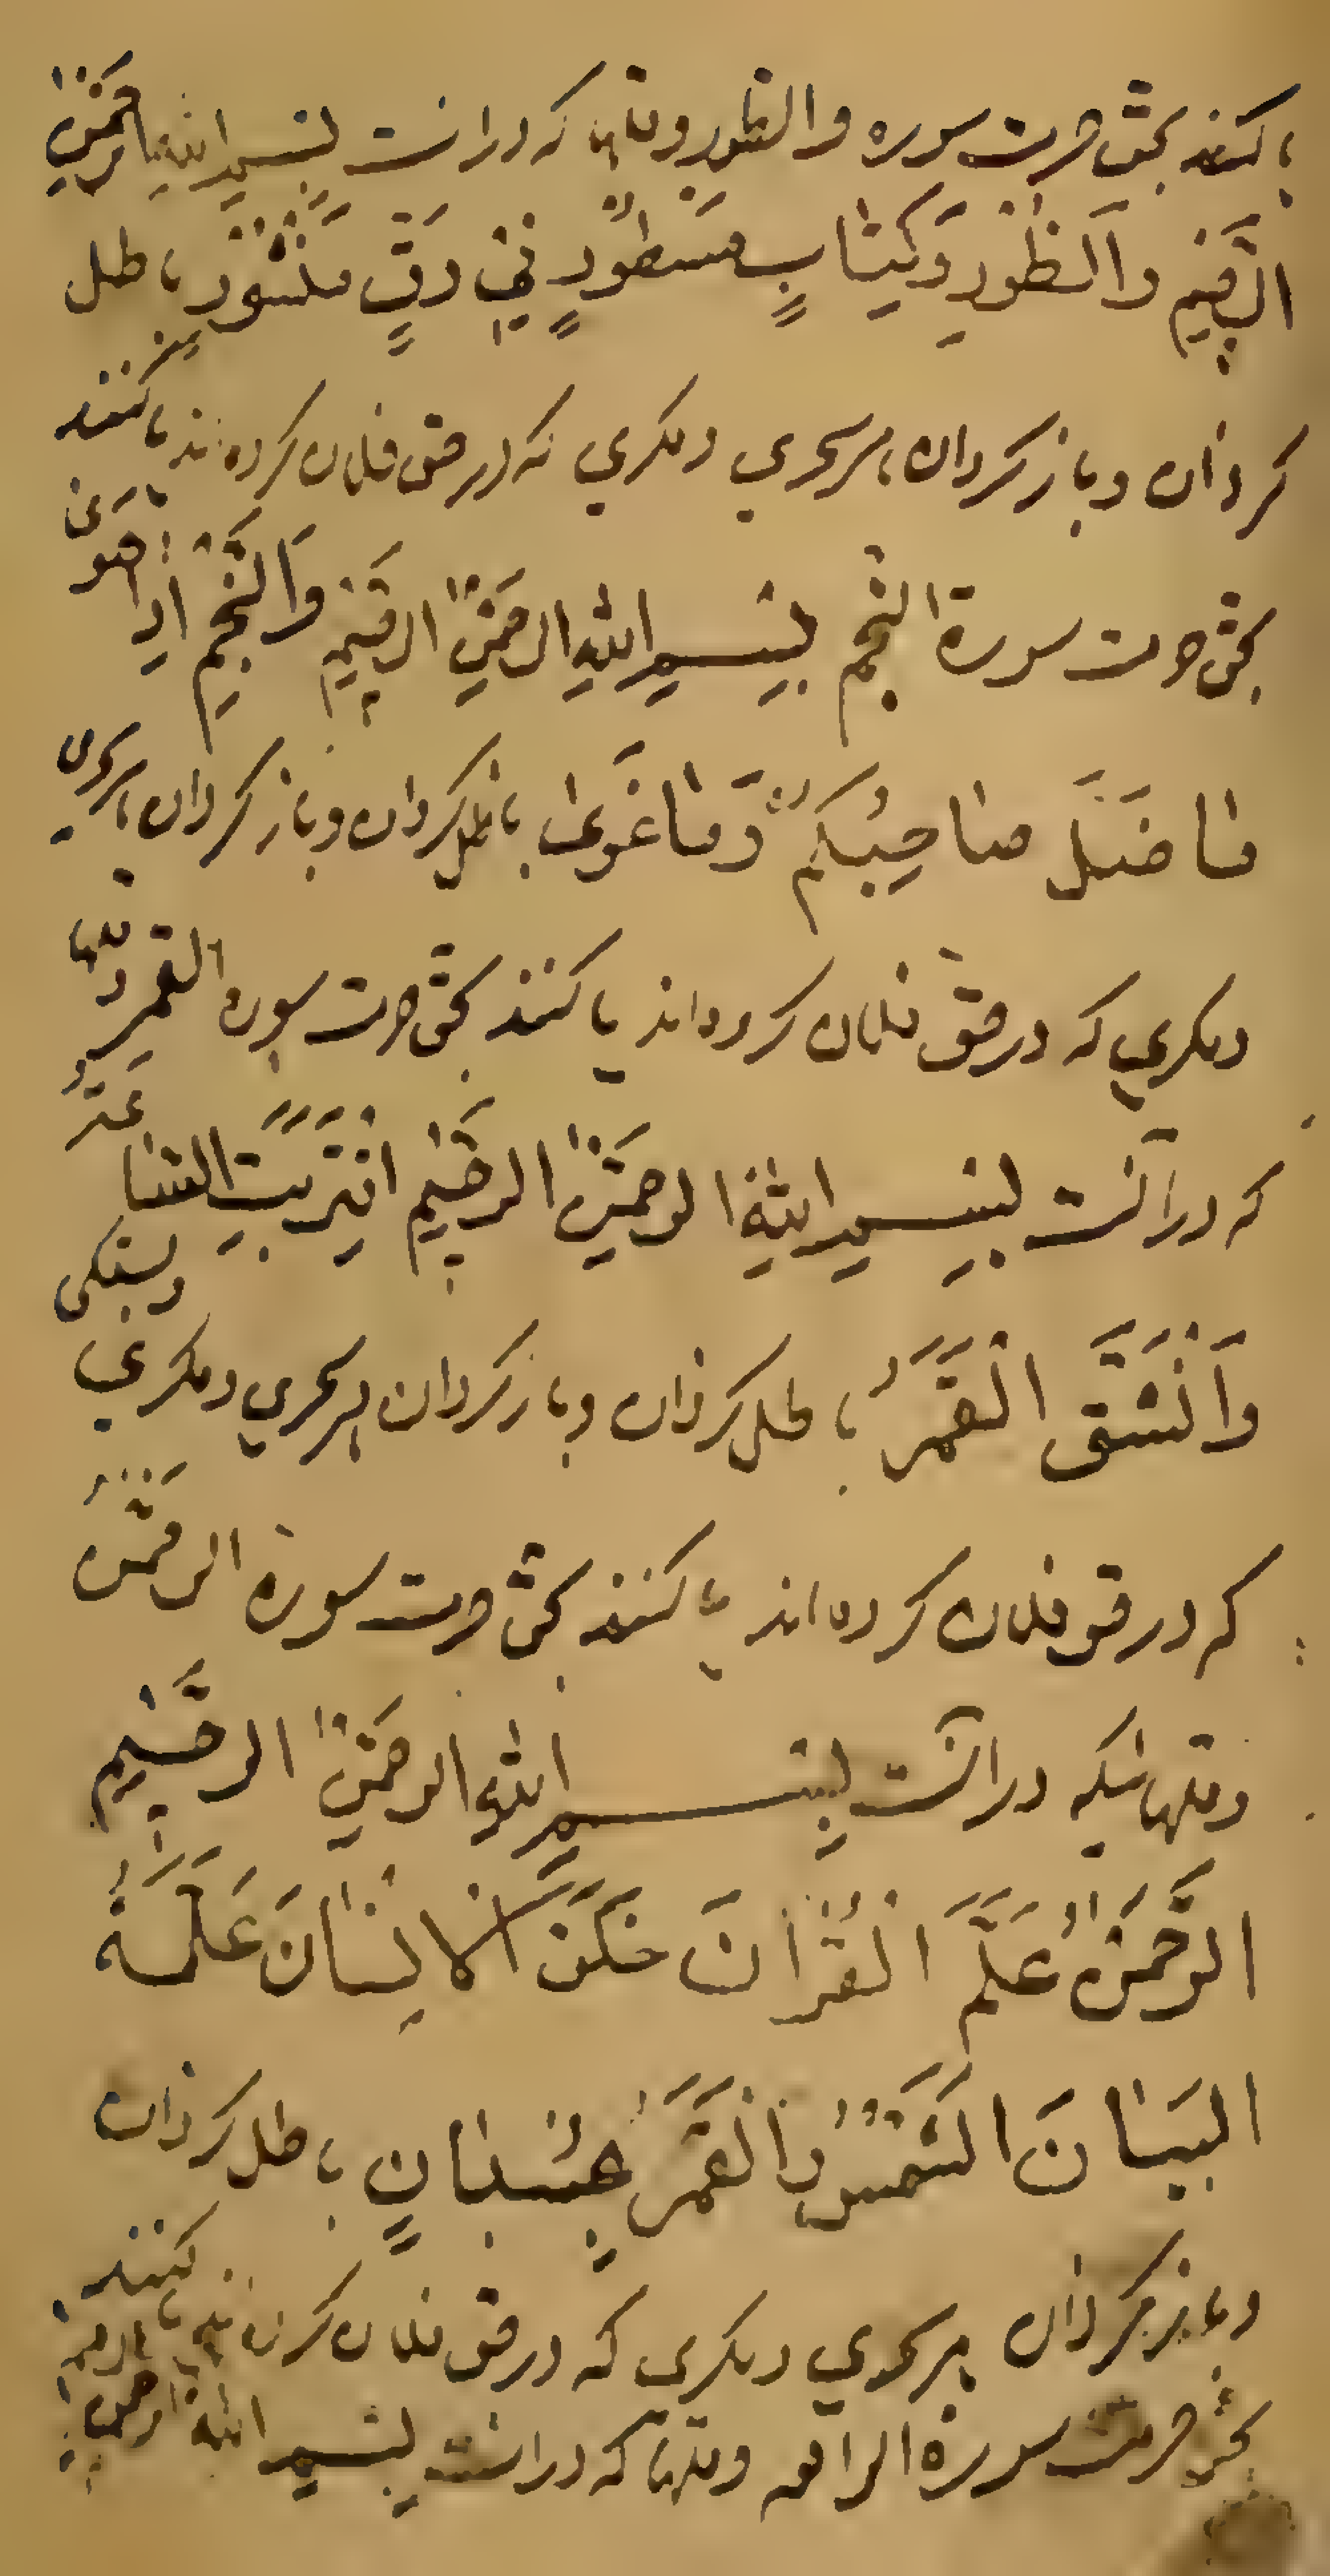 یا کنند بحق حرمت سوره والطور وقلها که درآنست بِسْمِ اللّٰهِ الرَّحْمٰنِ
الرَّحِیْمِ وَالطُّوْرِ وَکِتَابٍ مَسْطُوْرٍ فِیْ رَقٍّ مَنْشُوْرٍ باطل
کردان وبازکردان هر سحری ومکری که درحق فلان کرده‌اند یا کنند
بحق حرمت سورة النجم بِسْمِ اللّٰهِ الرَّحْمٰنِ الرَّحِیْمِ وَالنَّجْمِ اِذَا هَوٰی
مَا ضَلَّ صَاحِبُکُمْ وَمَا غَوٰی باطل کردان وبازکردان هر سحری
ومکری که درحق فلان کرده‌اند یا کنند بحق حرمت سوره القمر
که درآنست بِسْمِ اللّٰهِ الرَّحْمٰنِ الرَّحِیْمِ اقْتَرَبَتِ السَّاعَةُ
وَانْشَقَّ الْقَمَرُ باطل کردان وبازکردان هر سحری ومکری
که درحق فلان کرده‌اند یا کنند بحق حرمت سورة الرحمن
وقلهائیکه درآنست بِسْمِ اللّٰهِ الرَّحْمٰنِ الرَّحِیْمِ
الرَّحْمٰنُ عَلَّمَ الْقُرْاٰنَ خَلَقَ الْاِنْسَانَ عَلَّمَهُ
الْبَیَانَ الشَّمْسُ وَالْقَمَرُ بِحُسْبَانٍ باطل کردان
وبازکردان هر سحری ومکری که درحق فلان کرده‌اند یا کنند
بحق حرمت سورة الواقعه وقلها که درآنست بِسْمِ اللّٰهِ الرحمن الرحیم